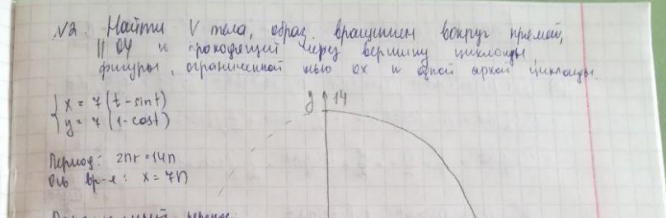 N2. Найти V тела, образ. вращением вокруг прямой,
|| OY и проходящей через вершину циклоиды
фигуры, ограниченной осью ох и одной аркой циклоиды.
{ x = 7(t - sint)
{ y = 7(1 - cost)
y 14
Период: 2πr = 14π
Ось вр-я: x = 7π